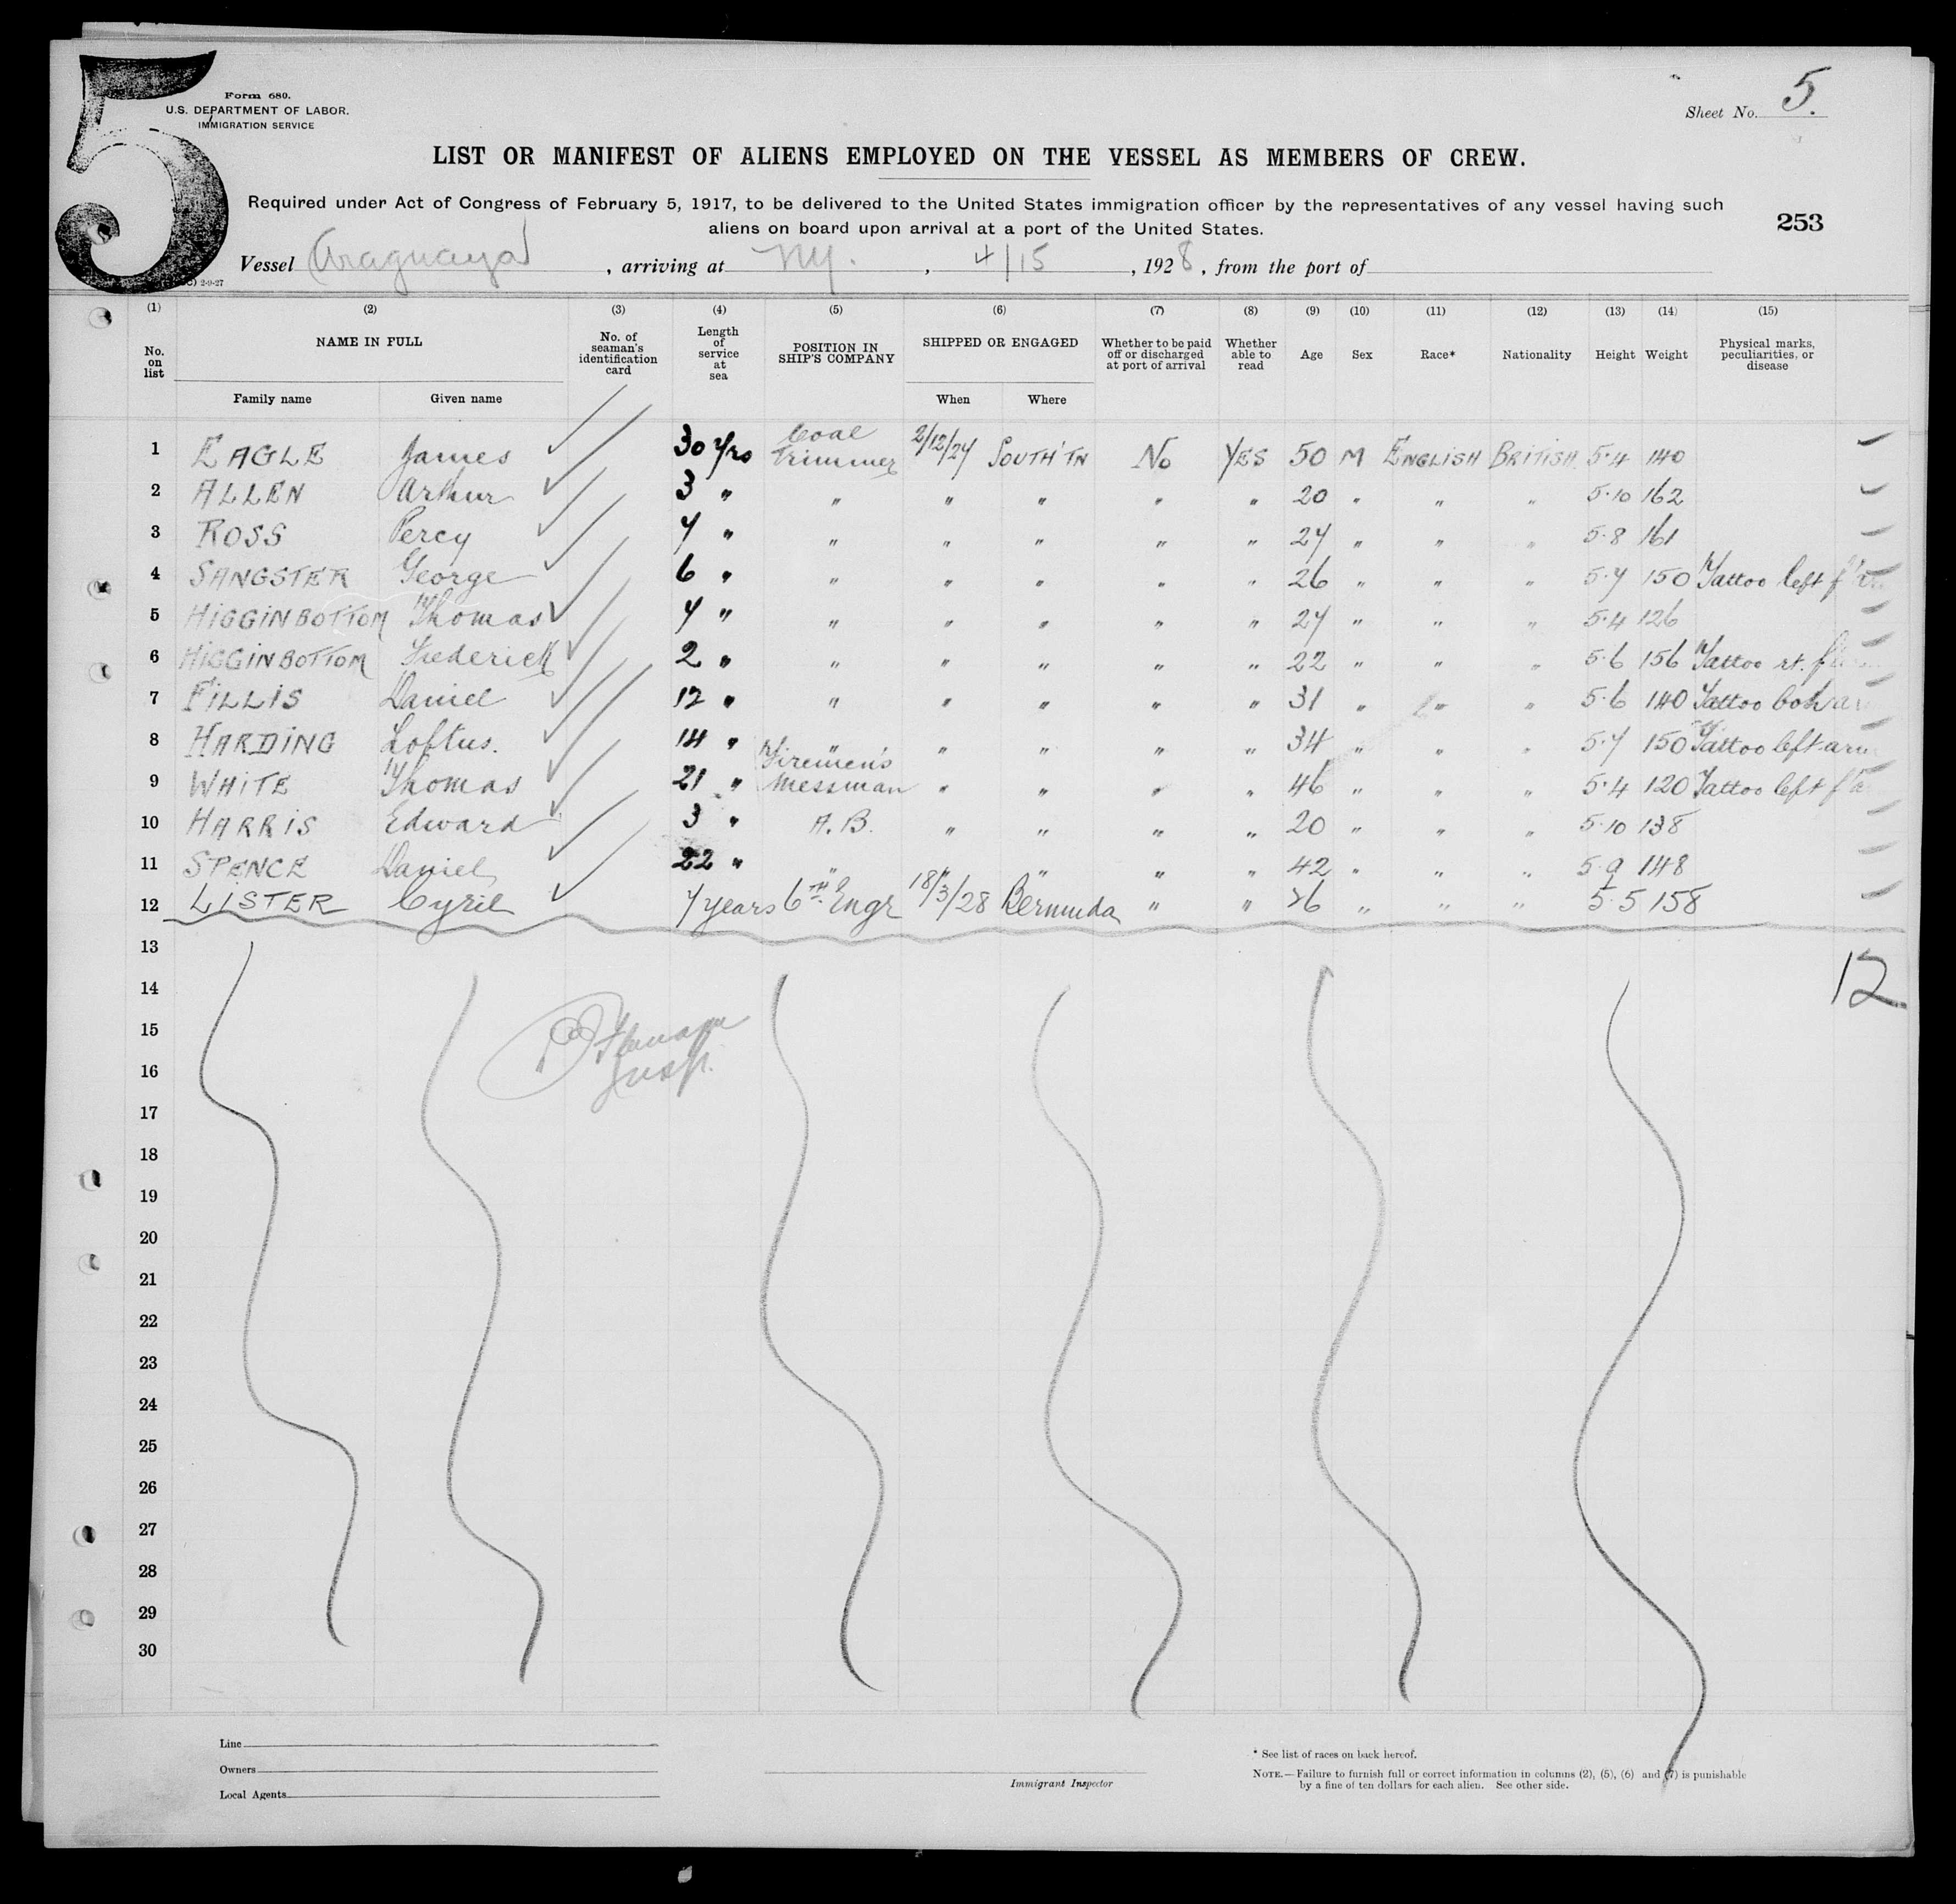 5
Form 680.
U.S. DEPARTMENT OF LABOR.
IMMIGRATION SERVICE
Sheet No. 5.
LIST OR MANIFEST OF ALIENS EMPLOYED ON THE VESSEL AS MEMBERS OF CREW.
Required under Act of Congress of February 5, 1917, to be delivered to the United States immigration officer by the representatives of any vessel having such
aliens on board upon arrival at a port of the United States.
253
Vessel Araguaya, arriving at NY., 4/15, 1928, from the port of
2-9-27
(1) (2) (3) (4) (5) (6) (7) (8) (9) (10) (11) (12) (13) (14) (15)
No. on list NAME IN FULL No. of seaman's identification card Length of service at sea POSITION IN SHIP'S COMPANY SHIPPED OR ENGAGED Whether to be paid off or discharged at port of arrival Whether able to read Age Sex Race* Nationality Height Weight Physical marks, peculiarities, or disease
Family name Given name When Where
1 EAGLE James 30 Yrs Coal Trimmer 2/12/27 SOUTH'TN No YES 50 M ENGLISH BRITISH 5·4 140
2 ALLEN Arthur 3 " " " " " " 20 " " " 5·10 162
3 ROSS Percy 7 " " " " " " 27 " " " 5·8 161
4 SANGSTER George 6 " " " " " " 26 " " " 5·7 150 Tattoo left
5 HIGGINBOTTOM Thomas 7 " " " " " " 27 " " " 5·4 126
6 HIGGINBOTTOM Frederick 2 " " " " " " 22 " " " 5·6 156 Tattoo rt.
7 FILLIS Daniel 12 " " " " " " 31 " " " 5·6 140 Tattoo both
8 HARDING Loftus. 14 " " " " " " 34 " " " 5·7 150 Tattoo left arm
9 WHITE Thomas 21 " Firemen's Messman " " " " 46 " " " 5·4 120 Tattoo left
10 HARRIS Edward 3 " A.B. " " " " 20 " " " 5·10 138
11 SPENCE Daniel 22 " " " " " " 42 " " " 5·9 148
12 LISTER Cyril 7 years 6TH Engr 18/3/28 Bermuda " " 26 " " " 5·5 158
13
12
14
15
16
Insp.
17
18
19
20
21
22
23
24
25
26
27
28
29
30
Line
Owners
Local Agents
Immigrant Inspector
* See list of races on back hereof.
NOTE.—Failure to furnish full or correct information in columns (2), (5), (6) and (7) is punishable
by a fine of ten dollars for each alien. See other side.